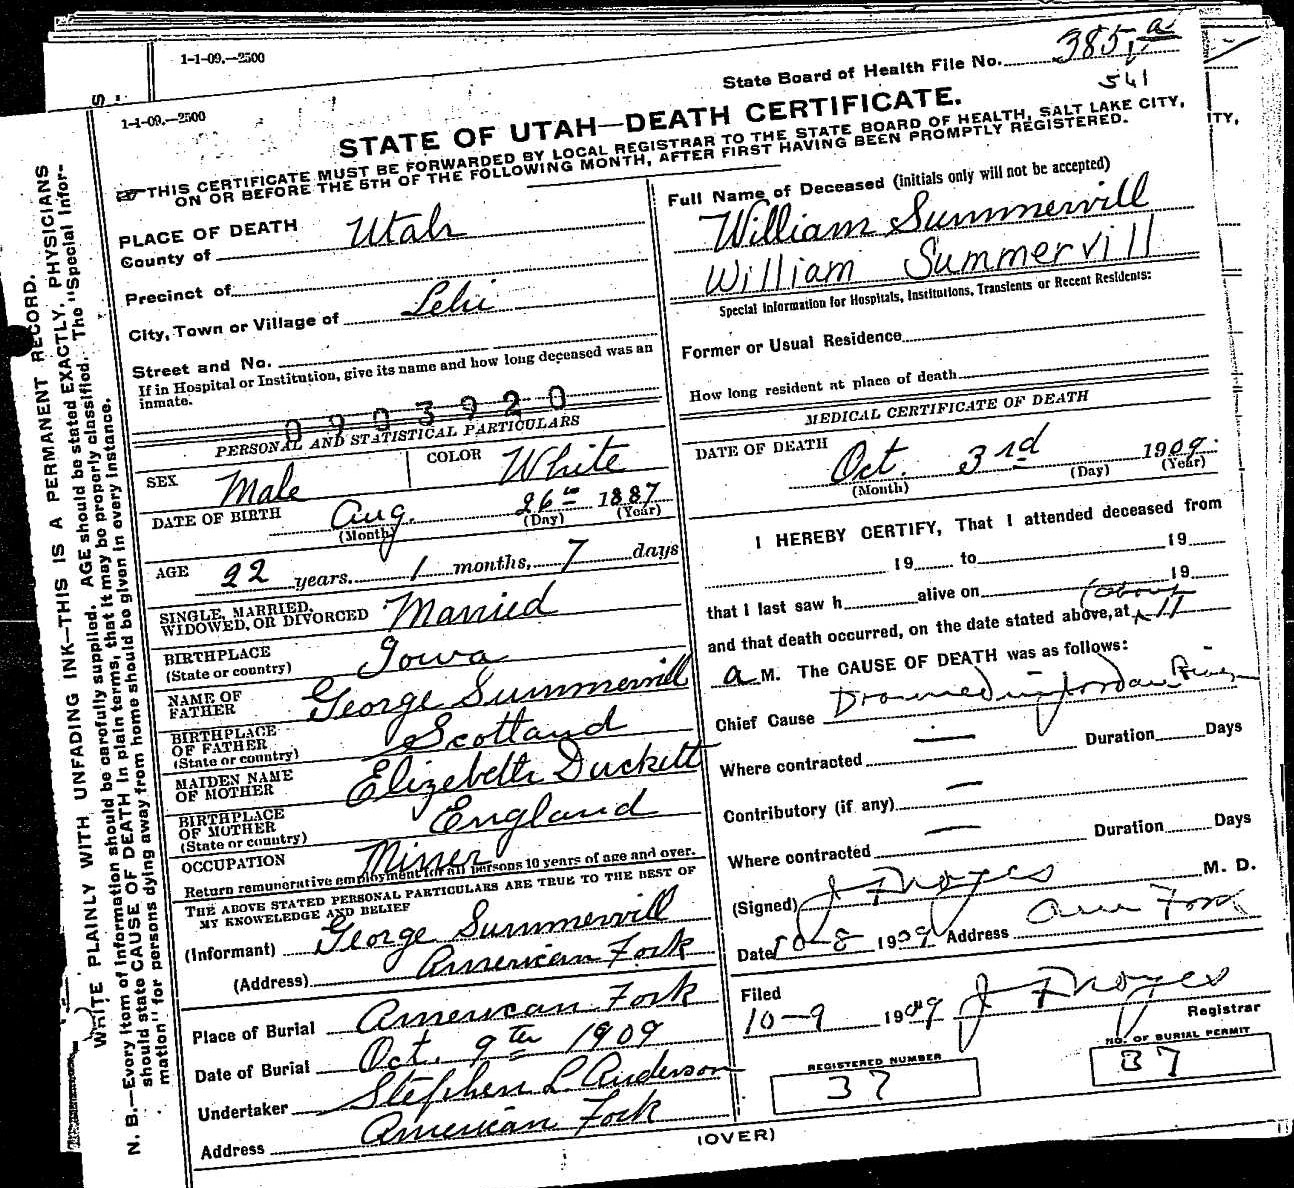 1-1-09.—2500
1-1-09.—2500
State Board of Health File No. 385 a
541
STATE OF UTAH—DEATH CERTIFICATE.
THIS CERTIFICATE MUST BE FORWARDED BY LOCAL REGISTRAR TO THE STATE BOARD OF HEALTH, SALT LAKE CITY,
ON OR BEFORE THE 5TH OF THE FOLLOWING MONTH, AFTER FIRST HAVING BEEN PROMPTLY REGISTERED.
ITY,
WRITE PLAINLY WITH UNFADING INK—THIS IS A PERMANENT RECORD.
N. B.—Every item of information should be carefully supplied. AGE should be stated EXACTLY. PHYSICIANS
should state CAUSE OF DEATH in plain terms, that it may be properly classified. The "Special Infor-
mation" for persons dying away from home should be given in every instance.
PLACE OF DEATH
County of Utah
Precinct of
City, Town or Village of Lehi
Street and No.
If in Hospital or Institution, give its name and how long deceased was an
inmate.
0903920
PERSONAL AND STATISTICAL PARTICULARS
SEX Male COLOR White
DATE OF BIRTH Aug. 26th 1887
(Month) (Day) (Year)
AGE 22 years. 1 months, 7 days
SINGLE, MARRIED,
WIDOWED, OR DIVORCED Married
BIRTHPLACE
(State or country) Iowa
NAME OF
FATHER George Summervill
BIRTHPLACE
OF FATHER
(State or country) Scotland
MAIDEN NAME
OF MOTHER Elizebeth Duckett
BIRTHPLACE
OF MOTHER
(State or country) England
OCCUPATION Miner
Return remunerative employment for all persons 10 years of age and over.
THE ABOVE STATED PERSONAL PARTICULARS ARE TRUE TO THE BEST OF
MY KNOWELEDGE AND BELIEF
(Informant) George Summervill
(Address) American Fork
Place of Burial American Fork
Date of Burial Oct. 9th 1909
Undertaker Stephen L Anderson
Address American Fork
Full Name of Deceased (initials only will not be accepted)
William Summervill
William Summervill
Special Information for Hospitals, Institutions, Transients or Recent Residents:
Former or Usual Residence
How long resident at place of death
MEDICAL CERTIFICATE OF DEATH
DATE OF DEATH Oct. 3rd 1909.
(Month) (Day) (Year)
I HEREBY CERTIFY, That I attended deceased from
19 to 19
that I last saw h alive on 19
(about
and that death occurred, on the date stated above, at 11
a M. The CAUSE OF DEATH was as follows:
Chief Cause Drowned in Jordan River
Where contracted — Duration Days
Contributory (if any) —
Where contracted — Duration Days
(Signed) J F Noyes M. D.
Date 10-8 1909 Address Am Fork
Filed
10-9 1909 J F Noyes
Registrar
REGISTERED NUMBER
37
NO. OF BURIAL PERMIT
37
(OVER)